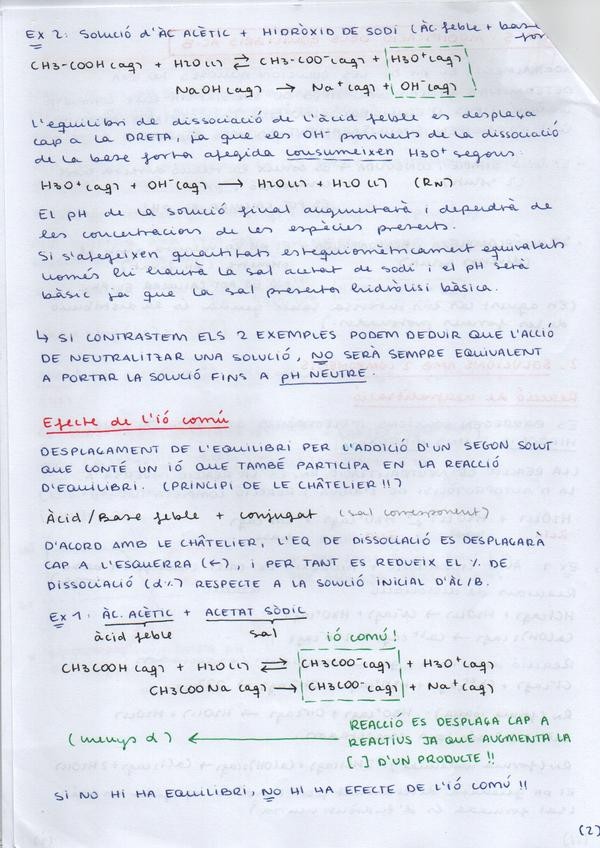 Ex 2: Solució d'Àc Acètic + Hidròxid de Sodi (Àc. feble + base forta
CH3-COOH(aq) + H2O(l) ⇄ CH3-COO⁻(aq) + H3O⁺(aq)
NaOH(aq) → Na⁺(aq) + OH⁻(aq)
L'equilibri de dissociació de l'àcid feble es desplaça
cap a la DRETA, ja que els OH⁻ provinents de la dissociació
de la base forta afegida consumeixen H3O⁺ segons:
H3O⁺(aq) + OH⁻(aq) → H2O(l) + H2O(l) (RN)
El pH de la solució final augmentarà i dependrà de
les concentracions de les espècies presents.
Si s'afegeixen quantitats estequiomètricament equivalents
només hi haurà la sal acetat de sodi i el pH serà
bàsic ja que la sal presenta hidròlisi bàsica.
↳ SI CONTRASTEM ELS 2 EXEMPLES PODEM DEDUIR QUE L'ACCIÓ
DE NEUTRALITZAR UNA SOLUCIÓ, NO SERÀ SEMPRE EQUIVALENT
A PORTAR LA SOLUCIÓ FINS A pH NEUTRE.
Efecte de l'ió comú
DESPLAÇAMENT DE L'EQUILIBRI PER L'ADDICIÓ D'UN SEGON SOLUT
QUE CONTÉ UN IÓ QUE TAMBÉ PARTICIPA EN LA REACCIÓ
D'EQUILIBRI. (PRINCIPI DE LE CHÂTELIER !!)
Àcid/Base feble + conjugat (sal corresponent)
D'ACORD AMB LE CHÂTELIER, L'EQ DE DISSOCIACIÓ ES DESPLAÇARÀ
CAP A L'ESQUERRA (←), I PER TANT ES REDUEIX EL % DE
DISSOCIACIÓ (α%) RESPECTE A LA SOLUCIÓ INICIAL D'ÀC/B.
Ex 1: ÀC. ACÈTIC + ACETAT SÒDIC
àcid feble sal ió comú!
CH3COOH(aq) + H2O(l) ⇄ CH3COO⁻(aq) + H3O⁺(aq)
CH3COONa(aq) → CH3COO⁻(aq) + Na⁺(aq)
(menys α) ← REACCIÓ ES DESPLAÇA CAP A
REACTIUS JA QUE AUGMENTA LA
[ ] D'UN PRODUCTE !!
SI NO HI HA EQUILIBRI, NO HI HA EFECTE DE L'IÓ COMÚ !!
(2)